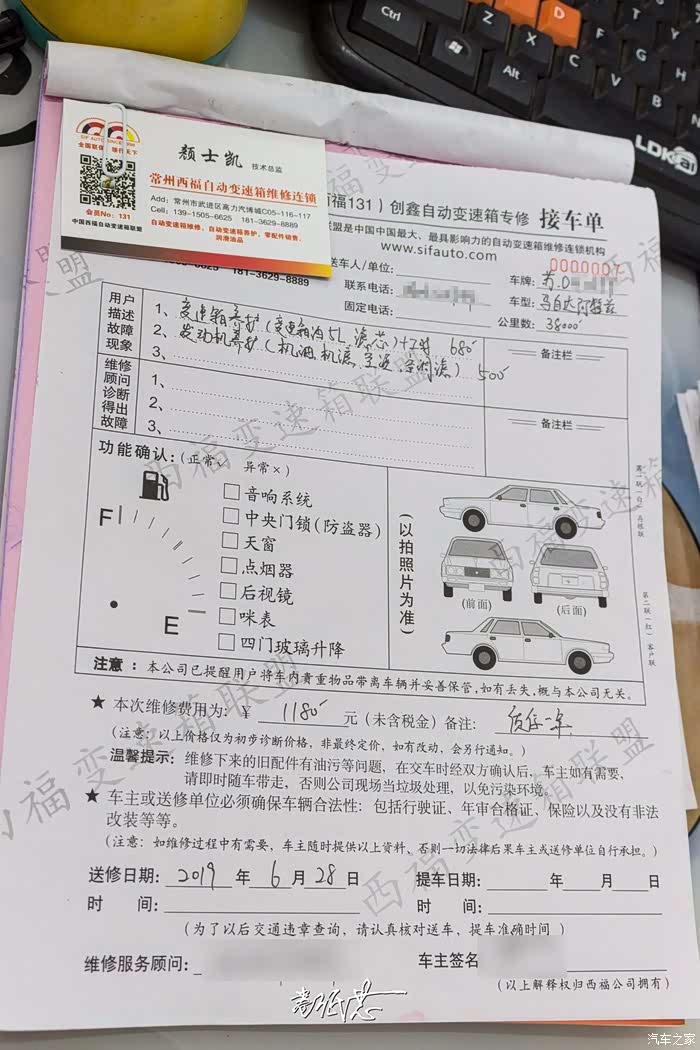 Ctrl
Alt
D
X
C
V
B
N
LDKai
SIF AUTO SINCE 1998
全国联保 修行天下
颜士凯 技术总监
常州西福自动变速箱维修连锁
Add：常州市武进区高力汽博城C05-116-117
Cell：139-1505-6625 181-3629-8889
会员No：131
中国西福自动变速箱联盟
自动变速箱维修、自动变速箱养护、零配件销售、
润滑油品
福131）创鑫自动变速箱专修 接车单
联盟是中国中国最大、最具影响力的自动变速箱维修连锁机构
www.sifauto.com
181-3629-8889
0000007
送车人/单位：
车牌：苏.D
联系电话：
车型：马自达阿特兹
固定电话：
公里数：38000
用户描述故障现象
1、变速箱养护（变速箱油5L，滤芯）+工时 680
2、发动机养护（机油，机滤，空滤，空调滤） 500
3、
备注栏
维修顾问诊断得出故障
1、
2、
3、
备注栏
功能确认：（正常√ 异常×）
F
E
音响系统
中央门锁（防盗器）
天窗
点烟器
后视镜
咪表
四门玻璃升降
（以拍照片为准）
（前面）
（后面）
第一联（白）存根联
第二联（红）客户联
注意：本公司已提醒用户将车内贵重物品带离车辆并妥善保管，如有丢失，概与本公司无关。
★ 本次维修费用为：¥ 1180 元（未含税金）备注：质保一年
（注意：以上价格仅为初步诊断价格，非最终定价，如有改动，会另行通知。）
温馨提示：维修下来的旧配件有油污等问题，在交车时经双方确认后，车主如有需要，
请即时随车带走，否则公司现场当垃圾处理，以免污染环境。
★ 车主或送修单位必须确保车辆合法性：包括行驶证、年审合格证、保险以及没有非法
改装等等。
（注意：如维修过程中有需要，车主随时提供以上资料、否则一切法律后果车主或送修单位自行承担。）
送修日期：2019 年 6 月 28 日
提车日期： 年 月 日
时 间：
时 间：
（为了以后交通违章查询，请认真核对送车，提车准确时间）
维修服务顾问：
车主签名
（以上解释权归西福公司拥有）
西福变速箱联盟
西福变速箱联盟
西福变速箱联盟
西福变速箱联盟
汽车之家